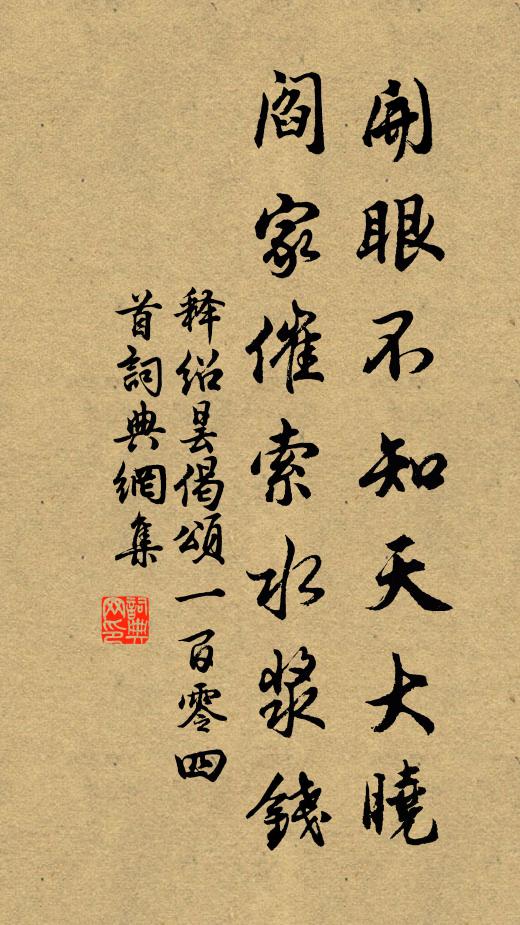 開眼不知天大曉
閻家催索水漿錢
释紹曇偈頌一百零四
首詞典網集
詞典
网印